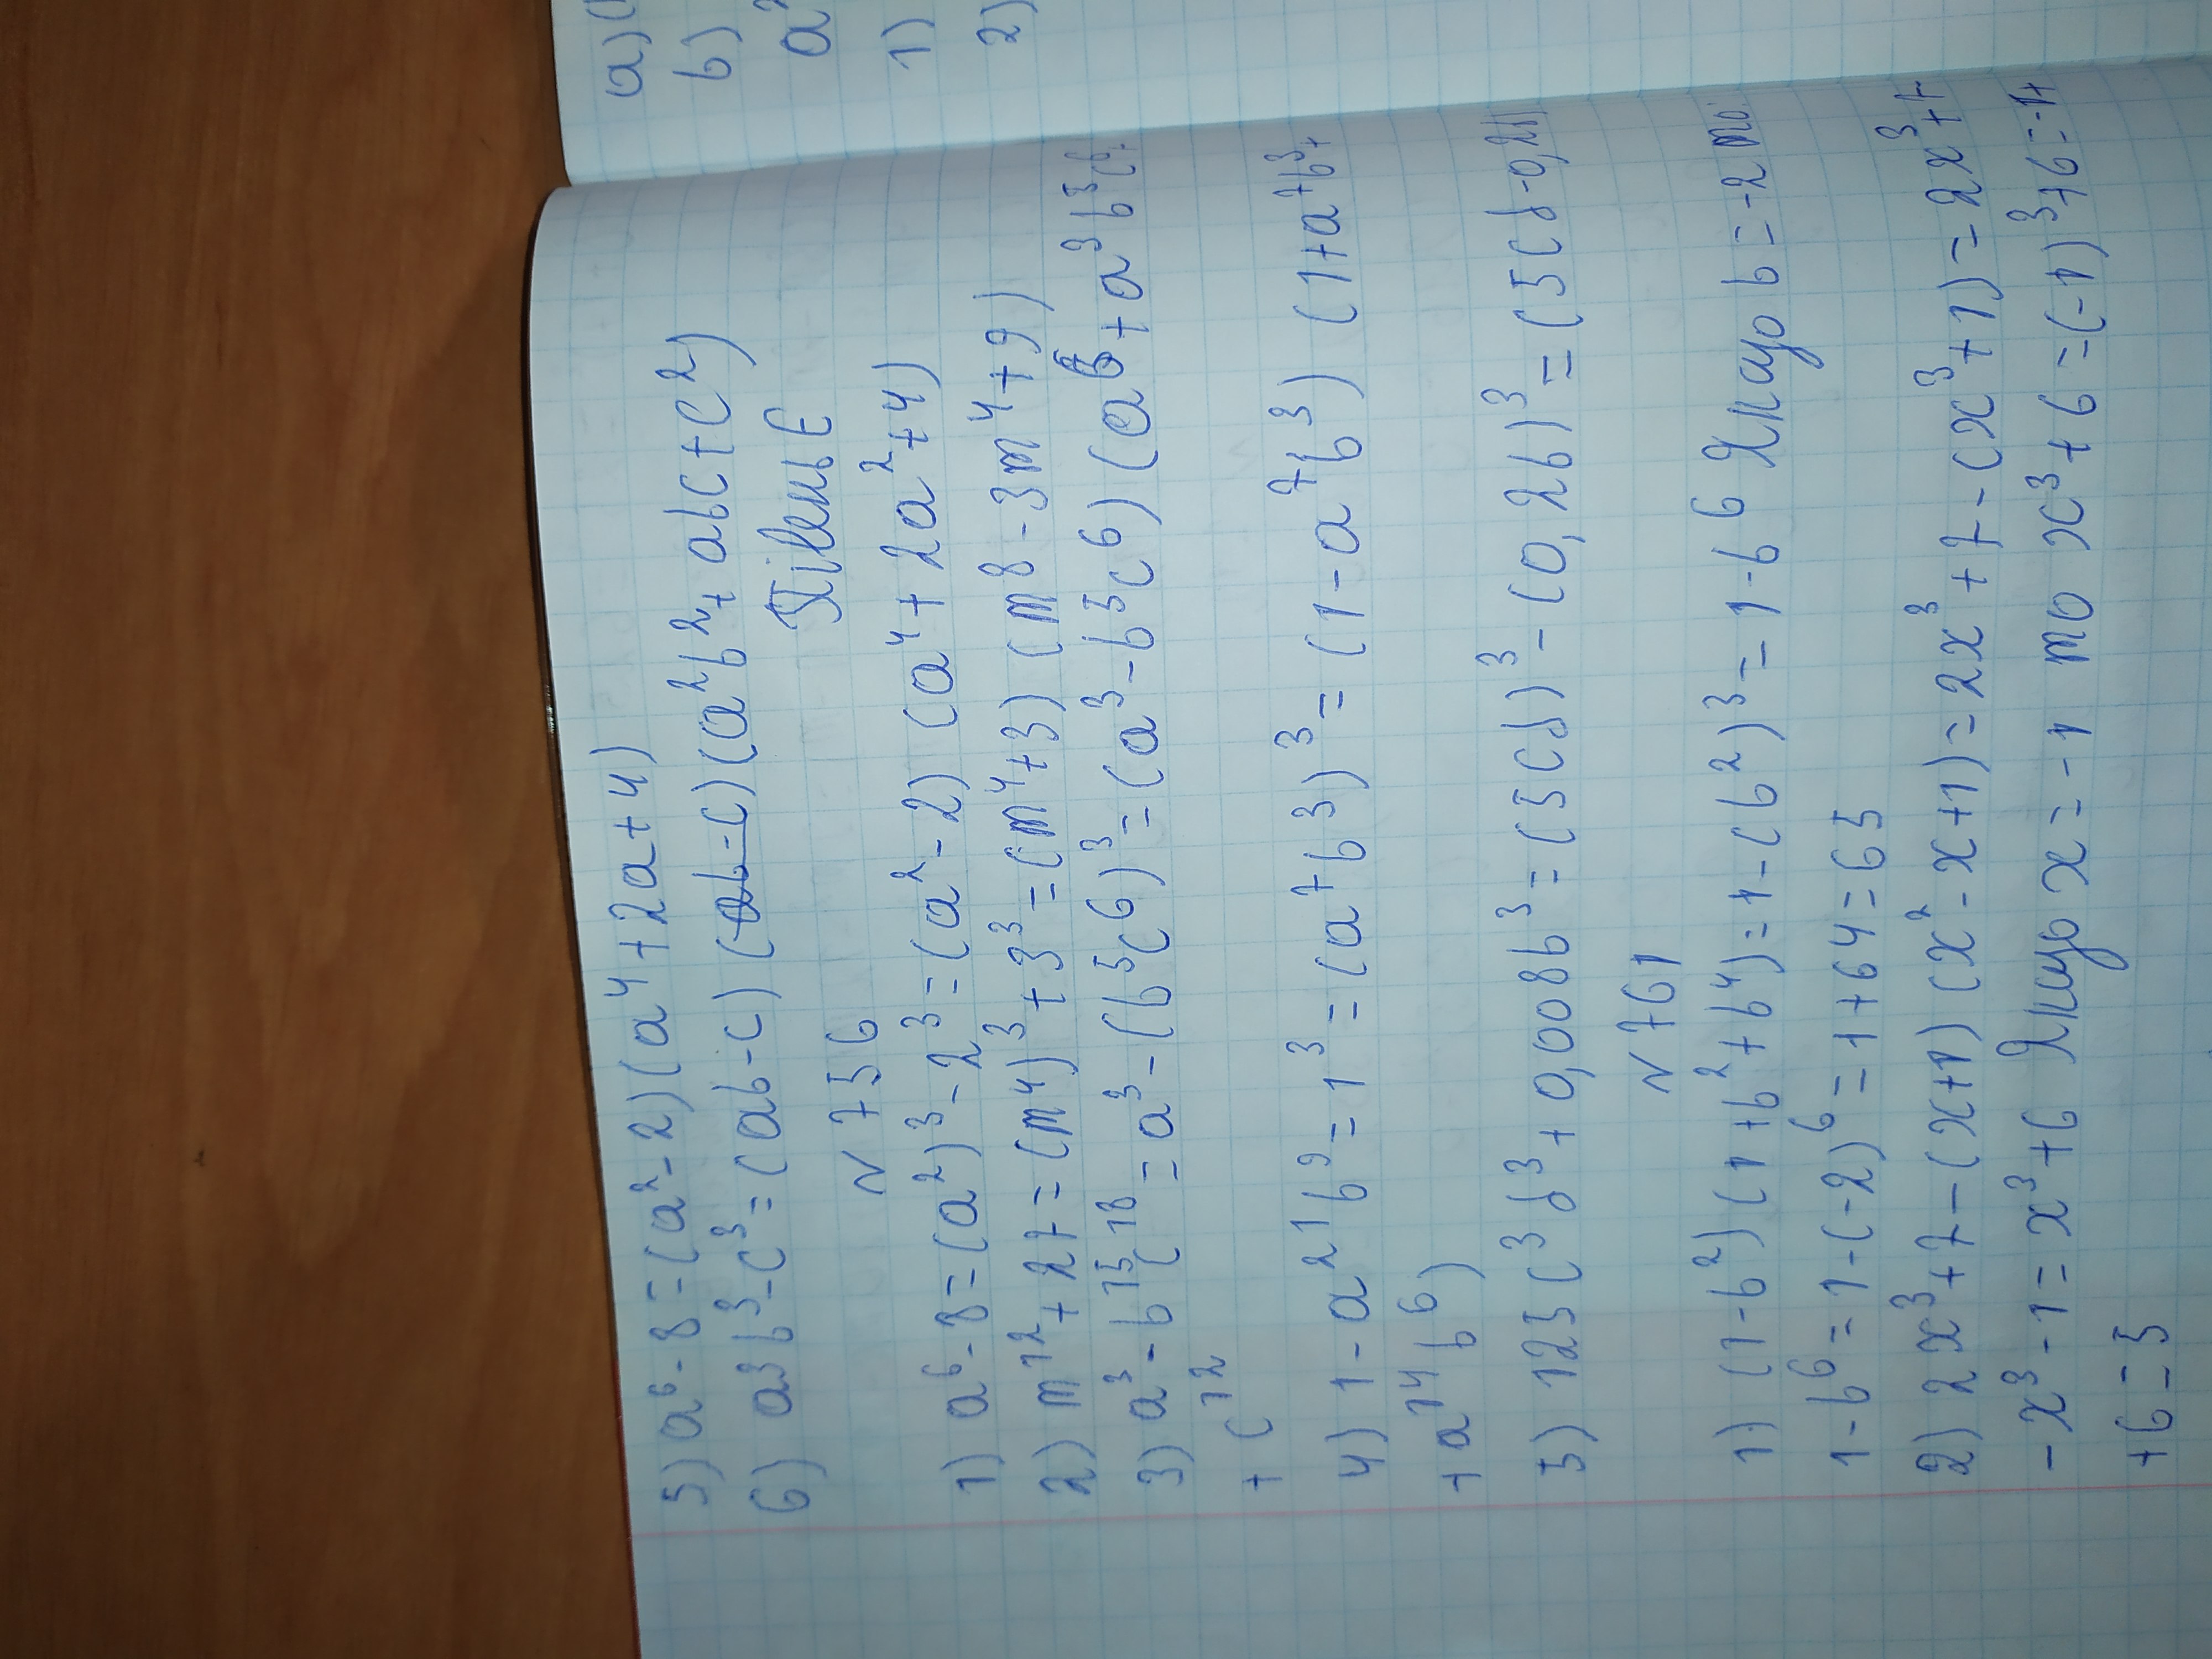 5) a⁶-8=(a²-2)(a⁴+2a+4)
6) a³b³-c³=(ab-c)(a²b²+abc+c²)
N 756
1) a⁶-8=(a²)³-2³=(a²-2)(a⁴+2a²+4)
2) m¹²+27=(m⁴)³+3³=(m⁴+3)(m⁸-3m⁴+9)
3) a³-b¹⁵c¹⁸=a³-(b⁵c⁶)³=(a³-b⁵c⁶)(a⁶+a³b⁵c⁶+
+c¹²
4) 1-a²¹b⁹=1³=(a⁷b³)³=(1-a⁷b³)(1+a⁷b³+
+a¹⁴b⁶)
5) 125c³d³+0,008b³=(5cd)³-(0,2b)³=(5cd-0,2b)
N 761
1) (1-b²)(1+b²+b⁴)=1-(b²)³=1-b⁶ Якщо b=-2 то
1-b⁶=1-(-2)⁶=1+64=65
2) 2x³+7-(x+1)(x²-x+1)=2x³+7-(x³+1)=2x³+7
-x³-1=x³+6 Якщо x=-1 то x³+6=(-1)³+6=-1+
+6=5
a)
b)
a
1)
2)